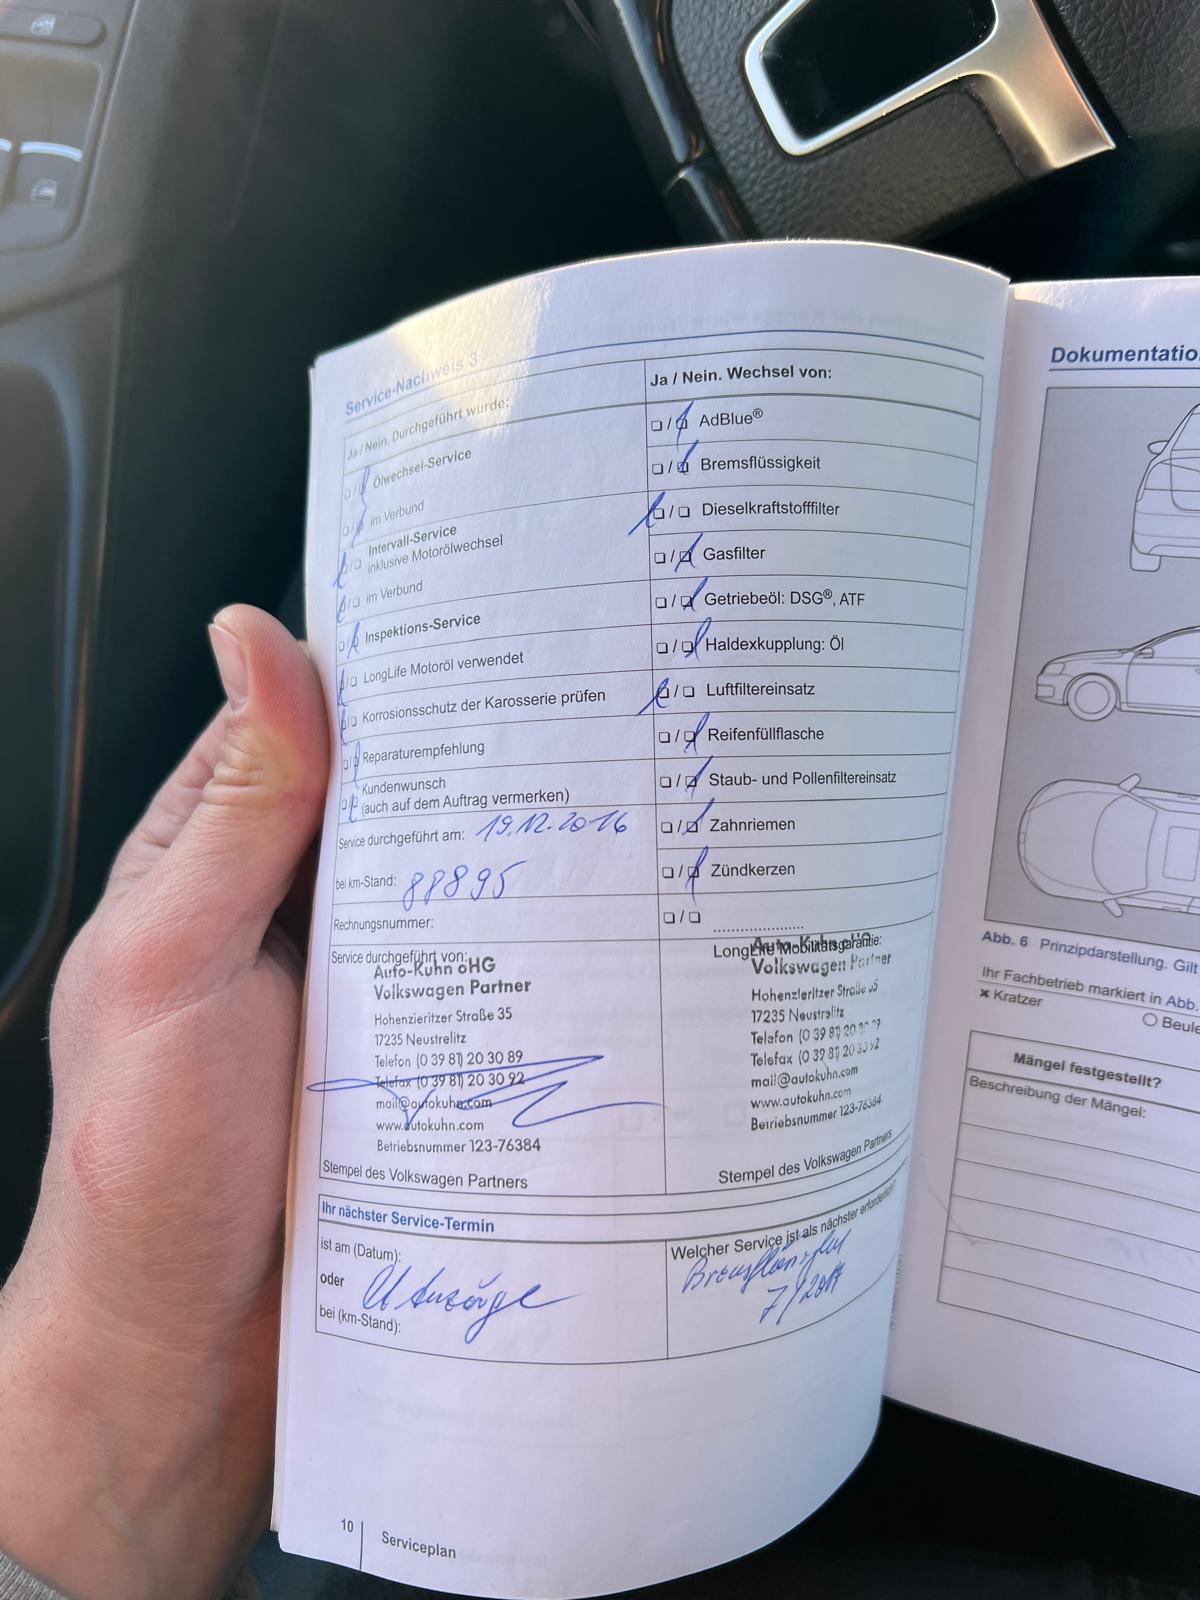 Service-Nachweis 3
Ja / Nein. Durchgeführt wurde:
❏/❏ Ölwechsel-Service
❏/❏ im Verbund
❏/❏ Intervall-Service
inklusive Motorölwechsel
❏/❏ im Verbund
❏/❏ Inspektions-Service
❏/❏ LongLife Motoröl verwendet
❏/❏ Korrosionsschutz der Karosserie prüfen
❏/❏ Reparaturempfehlung
❏/❏ Kundenwunsch
(auch auf dem Auftrag vermerken)
Service durchgeführt am: 19.12.2016
bei km-Stand: 88895
Rechnungsnummer:
Service durchgeführt von:
Auto-Kuhn oHG
Volkswagen Partner
Hohenzieritzer Straße 35
17235 Neustrelitz
Telefon (0 39 81) 20 30 89
Telefax (0 39 81) 20 30 92
mail@autokuhn.com
www.autokuhn.com
Betriebsnummer 123-76384
Stempel des Volkswagen Partners
Ja / Nein. Wechsel von:
❏ / ❏ AdBlue®
❏ / ❏ Bremsflüssigkeit
❏ / ❏ Dieselkraftstofffilter
❏ / ❏ Gasfilter
❏ / ❏ Getriebeöl: DSG®, ATF
❏ / ❏ Haldexkupplung: Öl
❏ / ❏ Luftfiltereinsatz
❏ / ❏ Reifenfüllflasche
❏ / ❏ Staub- und Pollenfiltereinsatz
❏ / ❏ Zahnriemen
❏ / ❏ Zündkerzen
❏ / ❏ ....................
LongLife Mobilitätsgarantie:
Auto-Kuhn oHG
Volkswagen Partner
Hohenzieritzer Straße 35
17235 Neustrelitz
Telefon (0 39 81) 20 30 89
Telefax (0 39 81) 20 30 92
mail@autokuhn.com
www.autokuhn.com
Betriebsnummer 123-76384
Stempel des Volkswagen Partners
Ihr nächster Service-Termin
ist am (Datum):
oder
bei (km-Stand):
Welcher Service ist als nächster erforderlich?
7/2017
10
Serviceplan
Dokumentatio
Abb. 6 Prinzipdarstellung. Gilt
Ihr Fachbetrieb markiert in Abb.
✖ Kratzer
○ Beule
Mängel festgestellt?
Beschreibung der Mängel: